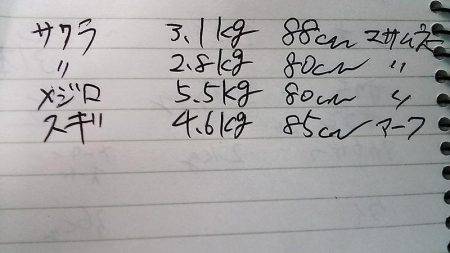 サクラ 3.1kg 88cm マサムネ
〃 2.8kg 80cm 〃
メジロ 5.5kg 80cm 〃
スギ 4.6kg 85cm マーフ